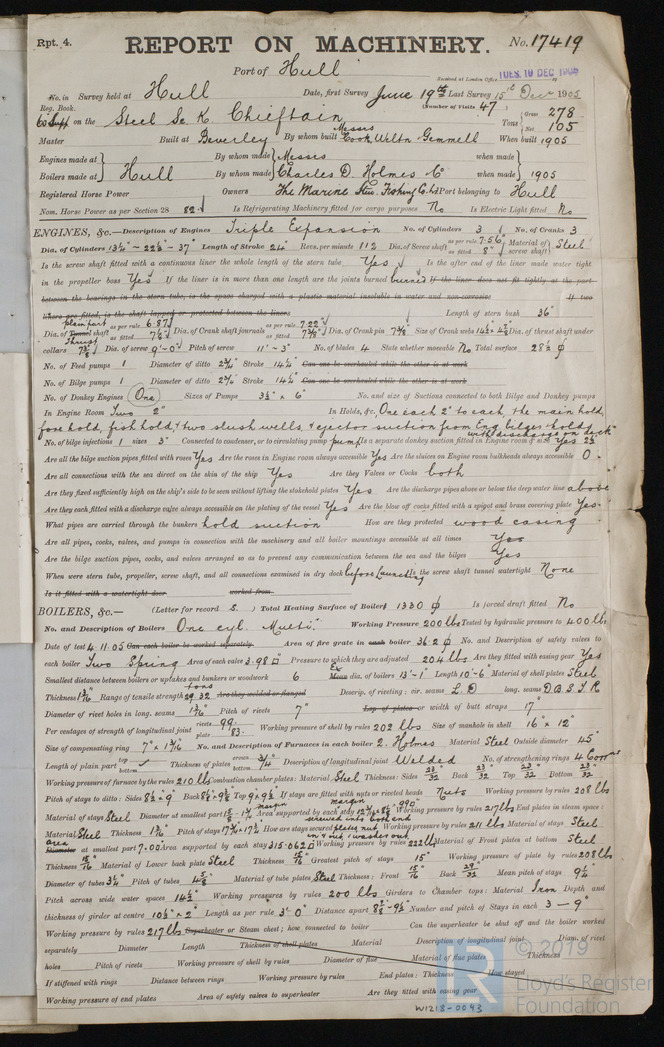 Rpt. 4.
REPORT ON MACHINERY. No. 17419
Port of Hull
Received at London Office TUES. 19 DEC 1905
No. in Survey held at Hull Date, first Survey June 19th Last Survey 15th Dec 1905
Reg. Book. (Number of Visits 47)
60 Supp on the Steel Sc. K. Chieftain Tons { Gross 278 Net 105
Master Built at Beverley By whom built Messrs Cook, Welton Gemmell When built 1905
Engines made at By whom made Messrs when made
Boilers made at Hull By whom made Charles D. Holmes & Co when made 1905
Registered Horse Power Owners The Marine Stm. Fishing Co. Ld Port belonging to Hull
Nom. Horse Power as per Section 28 82 Is Refrigerating Machinery fitted for cargo purposes No Is Electric Light fitted No
ENGINES, &c.—Description of Engines Triple Expansion No. of Cylinders 3 No. of Cranks 3
Dia. of Cylinders 13½" - 22½" - 37" Length of Stroke 24" Revs. per minute 112 Dia. of Screw shaft as per rule 7.56" as fitted 8" Material of screw shaft Steel
Is the screw shaft fitted with a continuous liner the whole length of the stern tube Yes Is the after end of the liner made water tight
in the propeller boss Yes If the liner is in more than one length are the joints burned burned If the liner does not fit tightly at the part
between the bearings in the stern tube, is the space charged with a plastic material insoluble in water and non-corrosive If two
liners are fitted, is the shaft lapped or protected between the liners Length of stern bush 36"
Dia. of Tunnel shaft plain part Thrust as per rule 6.87 as fitted Dia. of Crank shaft journals as per rule 7.22" as fitted 7⅜" Dia. of Crank pin 7⅜" Size of Crank webs Dia. of thrust shaft under
collars Dia. of screw 9'-0" Pitch of screw 11'-3" No. of blades 4 State whether moveable No Total surface 28½ ф
No. of Feed pumps 1 Diameter of ditto 2¾" Stroke 14¼" Can one be overhauled while the other is at work
No. of Bilge pumps 1 Diameter of ditto 2¾" Stroke 14¼" Can one be overhauled while the other is at work
No. of Donkey Engines One Sizes of Pumps 3½" x 6" No. and size of Suctions connected to both Bilge and Donkey pumps
In Engine Room Two 2" In Holds, &c. One each 2" to each, the main hold,
fore hold, fish hold, & two slush wells, & ejector suction from Eng. bilges & hold, with discharge on deck
No. of bilge injections 1 sizes 3" Connected to condenser, or to circulating pump pump Is a separate donkey suction fitted in Engine room & size Yes 2½
Are all the bilge suction pipes fitted with roses Yes Are the roses in Engine room always accessible Yes Are the sluices on Engine room bulkheads always accessible 0
Are all connections with the sea direct on the skin of the ship Yes Are they Valves or Cocks both
Are they fixed sufficiently high on the ship's side to be seen without lifting the stokehold plates Yes Are the discharge pipes above or below the deep water line above
Are they each fitted with a discharge valve always accessible on the plating of the vessel Yes Are the blow off cocks fitted with a spigot and brass covering plate Yes
What pipes are carried through the bunkers hold suction How are they protected wood casing
Are all pipes, cocks, valves, and pumps in connection with the machinery and all boiler mountings accessible at all times Yes
Are the bilge suction pipes, cocks, and valves arranged so as to prevent any communication between the sea and the bilges Yes
When were stern tube, propeller, screw shaft, and all connections examined in dry dock before launching Is the screw shaft tunnel watertight None
Is it fitted with a watertight door worked from
BOILERS, &c.— (Letter for record S.) Total Heating Surface of Boilers 1330 ф Is forced draft fitted No
No. and Description of Boilers One cyl. Multi. Working Pressure 200 lbs Tested by hydraulic pressure to 400 lbs
Date of test 4.11.05 Can each boiler be worked separately Area of fire grate in each boiler 36.2 ф No. and Description of safety valves to
each boiler Two Spring Area of each valve 3.98 Pressure to which they are adjusted 204 lbs Are they fitted with easing gear Yes
Smallest distance between boilers or uptakes and bunkers or woodwork 6 Ex Mean dia. of boilers 13'-1" Length 10'-6" Material of shell plates Steel
Thickness 1 3/16" Range of tensile strength 29/32 tons Are they welded or flanged Descrip. of riveting: cir. seams L.D long. seams D.B.S.T.R
Diameter of rivet holes in long. seams 1 3/16" Pitch of rivets 7" Lap of plates or width of butt straps 17"
Per centages of strength of longitudinal joint rivets 99. plate 83. Working pressure of shell by rules 202 lbs Size of manhole in shell 16" x 12"
Size of compensating ring 7" x 1 3/16 No. and Description of Furnaces in each boiler 2. Holmes Material Steel Outside diameter 45"
Length of plain part top bottom Thickness of plates crown bottom ¾ Description of longitudinal joint Welded No. of strengthening rings 4
Working pressure of furnace by the rules 210 lbs Combustion chamber plates: Material Steel Thickness: Sides 23/32 Back 23/32 Top 23/32 Bottom 23/32
Pitch of stays to ditto: Sides 8½" x 9" Back Top If stays are fitted with nuts or riveted heads Nuts Working pressure by rules 208 lbs
Material of stays Steel Diameter at smallest part Area supported by each stay Working pressure by rules 217 lbs End plates in steam space:
Material Steel Thickness 1 3/16" Pitch of stays How are stays secured screwed into both ends Working pressure by rules 211 lbs Material of stays Steel
Area Diameter at smallest part 7.00 Area supported by each stay 315.062 Working pressure by rules 222 lbs Material of Front plates at bottom Steel
Thickness 15/16" Material of Lower back plate Steel Thickness 15/16" Greatest pitch of stays 15" Working pressure of plate by rules 208 lbs
Diameter of tubes 3¼" Pitch of tubes 4⅝ Material of tube plates Steel Thickness: Front 15/16" Back 29/32 Mean pitch of stays 9¼"
Pitch across wide water spaces 14½" Working pressures by rules 200 lbs Girders to Chamber tops: Material Iron Depth and
thickness of girder at centre 10½" x 2" Length as per rule 3'-0" Distance apart Number and pitch of Stays in each 3 - 9"
Working pressure by rules 217 lbs Superheater or Steam chest; how connected to boiler Can the superheater be shut off and the boiler worked
separately Diameter Length Thickness of shell plates Material Description of longitudinal joint Diam. of rivet
holes Pitch of rivets Working pressure of shell by rules Diameter of flue Material of flue plates Thickness
If stiffened with rings Distance between rings Working pressure by rules End plates: Thickness How stayed
Working pressure of end plates Area of safety valves to superheater Are they fitted with easing gear
© 2019
LR
Lloyd's Register
Foundation
W1218-0043